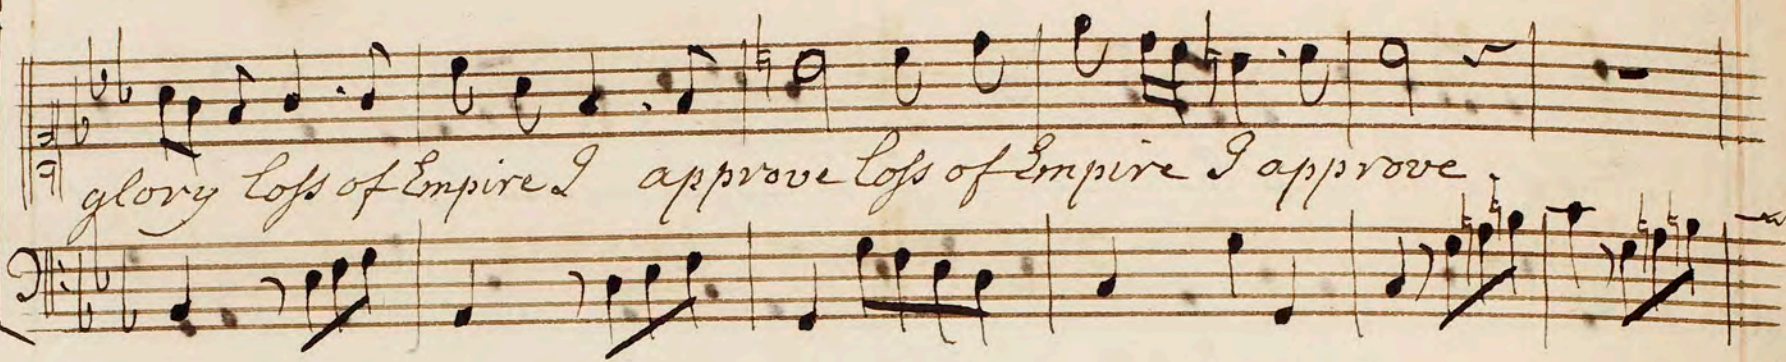 glory loſs of Empire I approve loſs of Empire I approve.